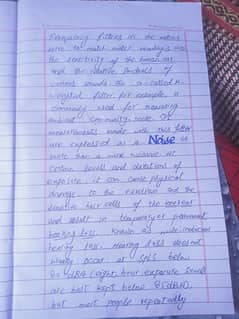 Frequency filters in the meters
to match meter readings with
the sensitivity of the human ear
and the relative
various sounds the so-called A-
filter for example, is
commonly used for measuring
ambient community noise. SPL
measurements made with this filter
are expressed as a Noise is
more than a mere nuisance at
certain levels and durations of
exposure, it can cause physical
damage to the eardrum and the
sensitive hair cells of the
and result in temporary permanent
hearing loss. Known as noise-induced
hearing loss, Hearing loss does not
usually occur at SPLS below
80 (eight hour exposure levels
are best kept below 85 dBA),
but most people repeatedly